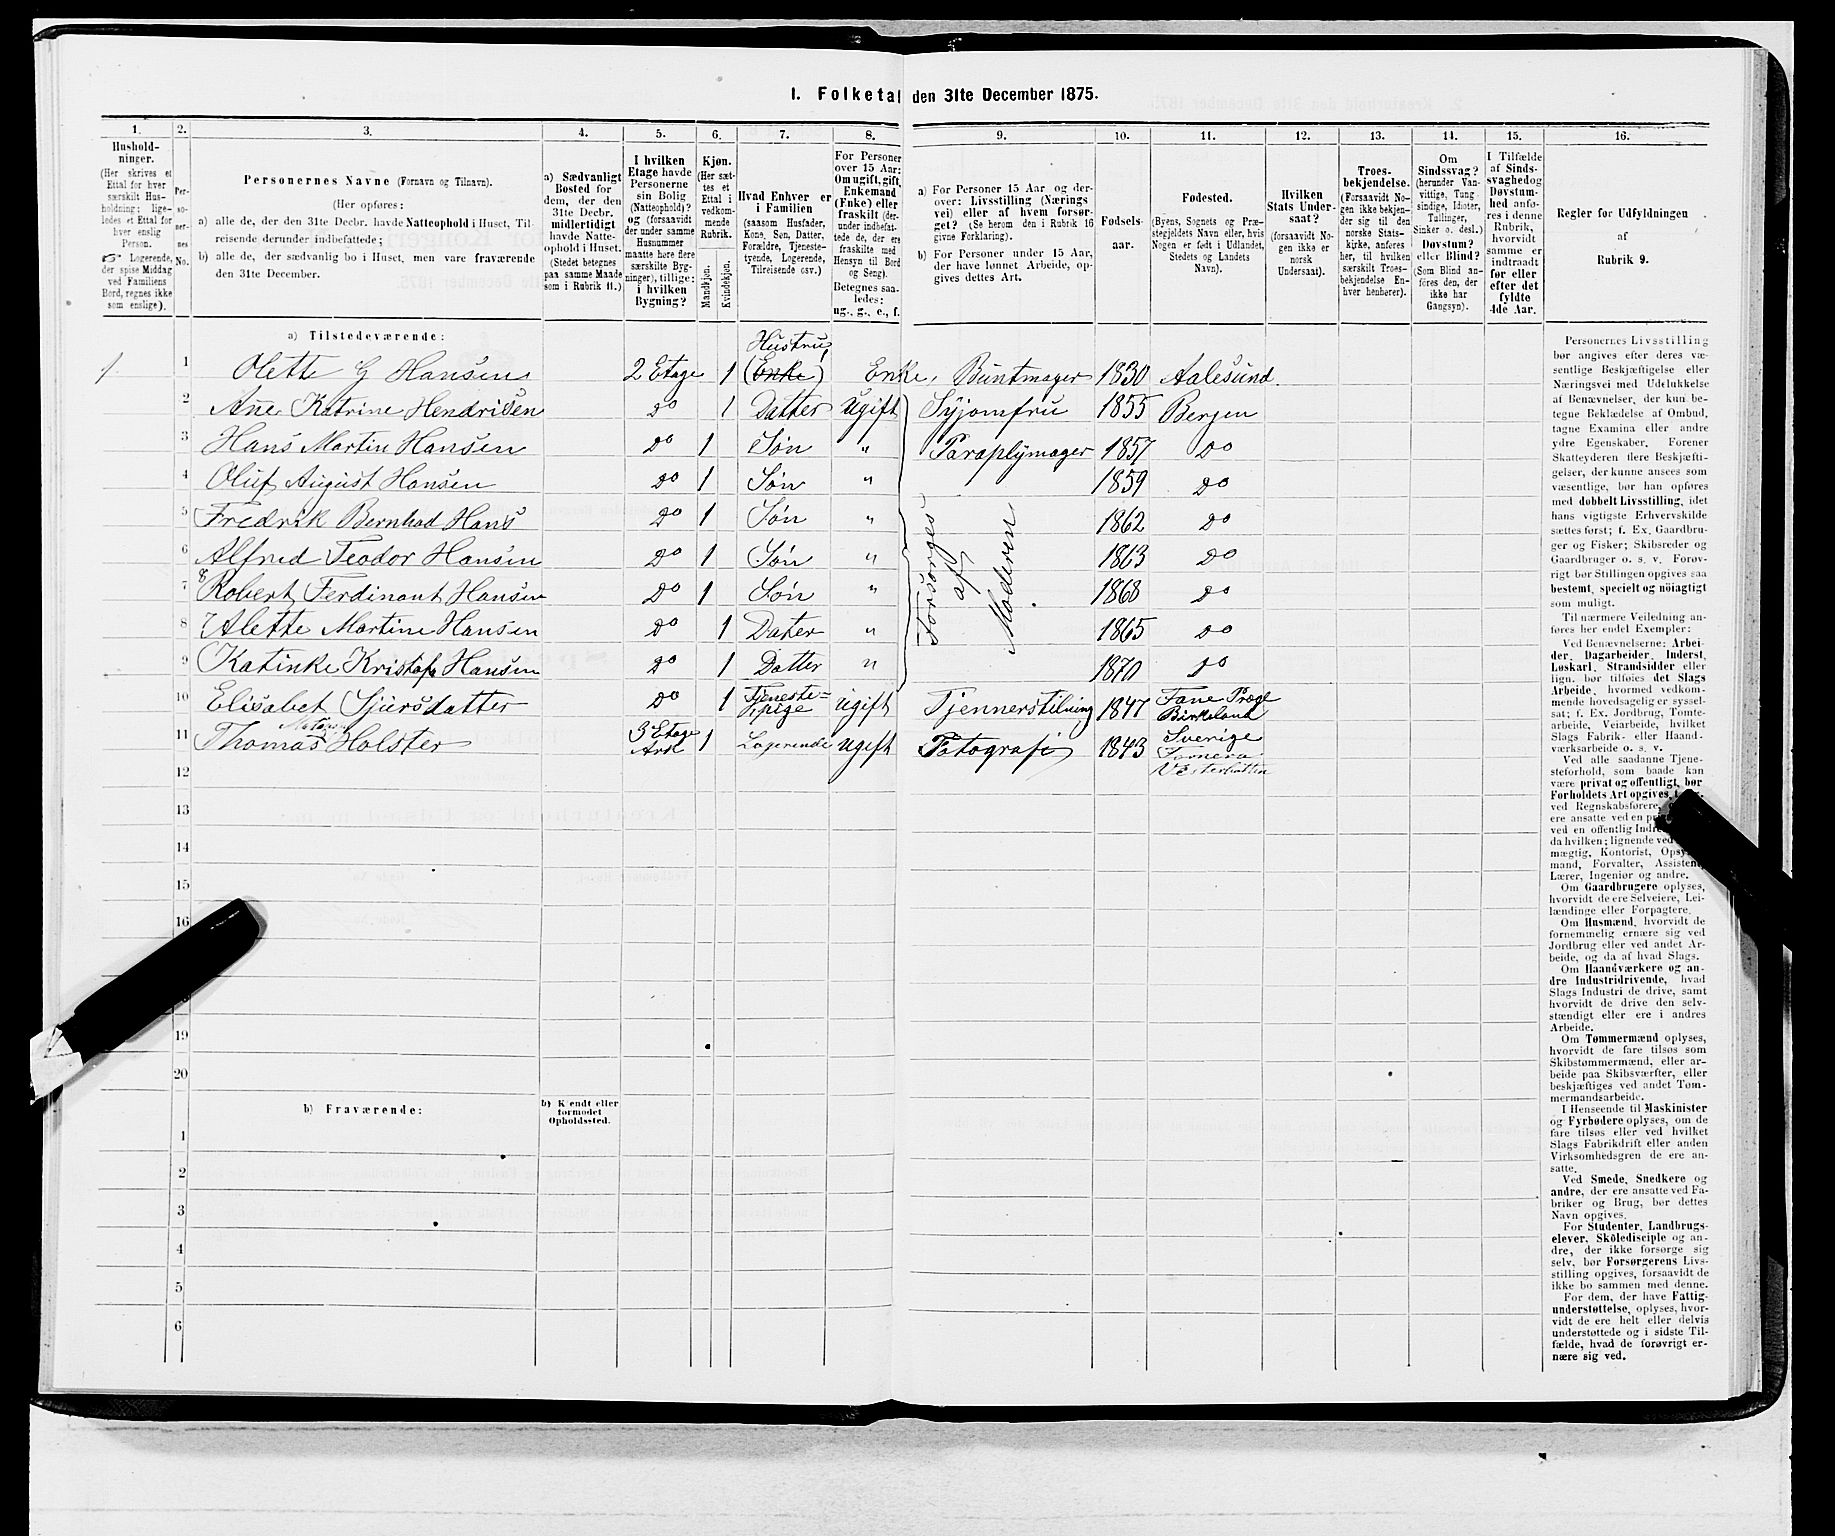 1. Folketal den 31te December 1875.
1. 2. 3. 4. 5. 6. 7. 8. 9. 10. 11. 12. 13. 14. 15. 16.
Hushold-
ninger.
(Her skrives et
Ettal for hver
særskilt Hus-
holdning; lige-
ledes et Ettal for
hver enslig
Person.
☞ Logerende,
der spise Middag
ved Familiens
Bord, regnes ikke
som enslige).
Per-
so-
ner-
nes
No.
Personernes Navne (Fornavn og Tilnavn).
(Her opføres:
a) alle de, der den 31te Decbr. havde Natteophold i Huset, Til-
reisende derunder indbefattede;
b) alle de, der sædvanlig bo i Huset, men vare fraværende
den 31te December.
a) Sædvanligt
Bosted for
dem, der den
31te Decbr.
midlertidigt
havde Natte-
ophold i Huset.
(Stedet betegnes
paa samme Maade
som i Rubrik 11.)
I hvilken
Etage havde
Personerne
sin Bolig
(Natteophold)?
og (forsaavidt
der under samme
Husnummer
maatte høre flere
særskilte Byg-
ninger), tillige:
i hvilken
Bygning?
Kjøn.
(Her sæt-
tes et
Ettal i
vedkom-
mende
Rubrik.
Mandkjøn.
Kvindekjøn.
Hvad Enhver er
i Familien
(saasom Husfader,
Kone, Søn, Datter,
Forældre, Tjeneste-
tyende, Logerende,
Tilreisende osv.)
For Personer
over 15 Aar:
Om ugift, gift,
Enkemand
(Enke) eller
fraskilt (der-
under indbefat-
tede de, der ere
fraskilte med
Hensyn til Bord
og Seng).
Betegnes saa-
ledes:
ug., g., e., f.
a) For Personer 15 Aar og der-
over: Livsstilling (Nærings
vei) eller af hvem forsør-
get? (Se herom den i Rubrik 16
givne Forklaring).
b) For Personer under 15 Aar,
der have lønnet Arbeide, op-
gives dettes Art.
Fødsels-
aar.
Fødested.
(Byens, Sognets og Præ-
stegjeldets Navn eller, hvis
Nogen er født i Udlandet,
Stedets og Landets
Navn).
Hvilken
Stats Under-
saat?
(forsaavidt No-
gen ikke er
norsk
Undersaat).
Troes-
bekjendelse.
(Forsaavidt No-
gen ikke bekjen-
der sig til den
norske Stats-
kirke, anføres
her, til hvilken
særskilt Troes-
bekjendelse En-
hver henhører).
Om
Sindssvag?
(herunder Van-
vittige, Tung-
sindige, Idioter,
Tullinger,
Sinker o. desl.)
Døvstum?
eller Blind?
(Som Blind an-
føres den, der
ikke har
Gangsyn).
I Tilfælde
af Sinds-
svaghed og
Døvstum-
hed anfø-
res i denne
Rubrik,
hvorvidt
samme er
indtraadt
før eller
efter det
fyldte
4de Aar.
Regler for Udfyldningen
af
Rubrik 9.
a) Tilstedeværende:
1 1 Olette G Hansen 2 Etage 1 Hustru (Enke) Enke, Buntmager 1830 Aalesund
2 Ane Katrine Hendrisen Do 1 Datter Ugift Syjomfru 1855 Bergen
3 Hans Martin Hansen Do 1 Søn " Paraplymager 1857 Do
4 Oluf August Hansen Do 1 Søn " 1859 Do
5 Fredrik Bernhad Hans Do 1 Søn " 1862 Do
6 Alfred Teodor Hansen Do 1 Søn " 1863 Do
7 8 Robert Ferdinant Hansen Do 1 Søn " 1868 Do
8 7 Alette Martine Hansen Do 1 Dater " 1865 Do
9 Katinke Kristofa Hansen Do 1 Datter " 1870 Do
Forsørges
af
Moderen.
10 Elisabet Sjursdatter Do 1 Tjeneste=
pige ugift Tjennerstilning 1847 Fane Præg
Birkeland
11 Thomas Holster 3 Etage
Ark 1 Logerende ugift Fotografi 1843 Sverige
Vesterbotten
12
13
14
15
16
19
20
b) Fraværende:
b) Kjendt eller
formodet
Opholdssted.
1
2
3
4
5
6
Personernes Livsstilling
bør angives efter deres væ-
sentlige Beskjæftigelse eller
Næringsvei med Udelukkelse
af Benævnelser, der kun be-
tegne Beklædelse af Ombud,
tagne Examina eller andre
ydre Egenskaber. Forener
Skatteyderen flere Beskjæfti-
gelser, der kunne ansees som
væsentlige, bør han opføres
med dobbelt Livsstilling, idet
hans vigtigste Erhvervskilde
sættes først; f. Ex. Gaardbru-
ger og Fisker; Skibsreder og
Gaardbruger o. s. v. Forøv-
rigt bør Stillingen opgives saa
bestemt, specielt og nöiagtigt
som muligt.
Til nærmere Veiledning an-
føres her endel Exempler:
Ved Benævnelserne: Arbei-
der, Dagarbeider, Inderst,
Løskarl, Strandsidder eller
lign. bør tilføies det Slags
Arbeide, hvormed vedkom-
mende hovedsagelig er syssel-
sat; f. Ex. Jordbrug, Tomte-
arbeide, Veiarbeide, hvilket
Slags Fabrik- eller Haand-
værksarbeide o. s. v.
Ved alle saadanne Tjene-
steforhold, som baade kan
være privat og offentligt, bør
Forholdets Art opgives,
ved Regnskabsførere,
ere ansatte ved en
ved en offentlig
da hvilken; lignende ved
mægtig, Kontorist,
mand, Forvalter,
Lærer, Ingeniør og andre.
Om Gaardbrugere oplyses,
hvorvidt de ere Selveiere, Lei-
lændinge eller Forpagtere.
Om Husmænd, hvorvidt de
fornemmelig ernære sig ved
Jordbrug eller ved andet Ar-
beide, og da af hvad Slags.
Om Haandværkere og an-
dre Industridrivende, hvad
Slags Industri de drive, samt
hvorvidt de drive den selv-
stændigt eller ere i andres
Arbeide.
Om Tømmermænd oplyses,
hvorvidt de fare tilsøs som
Skibstømmermænd, eller ar-
beide paa Skibsværfter, eller
beskjæftiges ved andet Tøm-
mermandsarbeide.
I Henseende til Maskinister
og Fyrbødere oplyses, om de
fare tilsøs eller ved hvilket
Slags Fabrikdrift eller anden
Virksomhedsgren de ere an-
satte.
Ved Smede, Snedkere og
andre, der ere ansatte ved Fa-
briker og Brug, bør dettes
Navn opgives.
For Studenter, Landbrugs-
elever, Skoledisciple og an-
dre, der ikke forsørge sig
selv, bør Forsørgerens Livs-
stilling opgives, forsaavidt de
ikke bo sammen med denne.
For dem, der have Fattig-
understøttelse, oplyses, hvor-
vidt de ere helt eller delvis
understøttede og i sidste Til-
fælde, hvad de forøvrigt er-
nære sig ved.